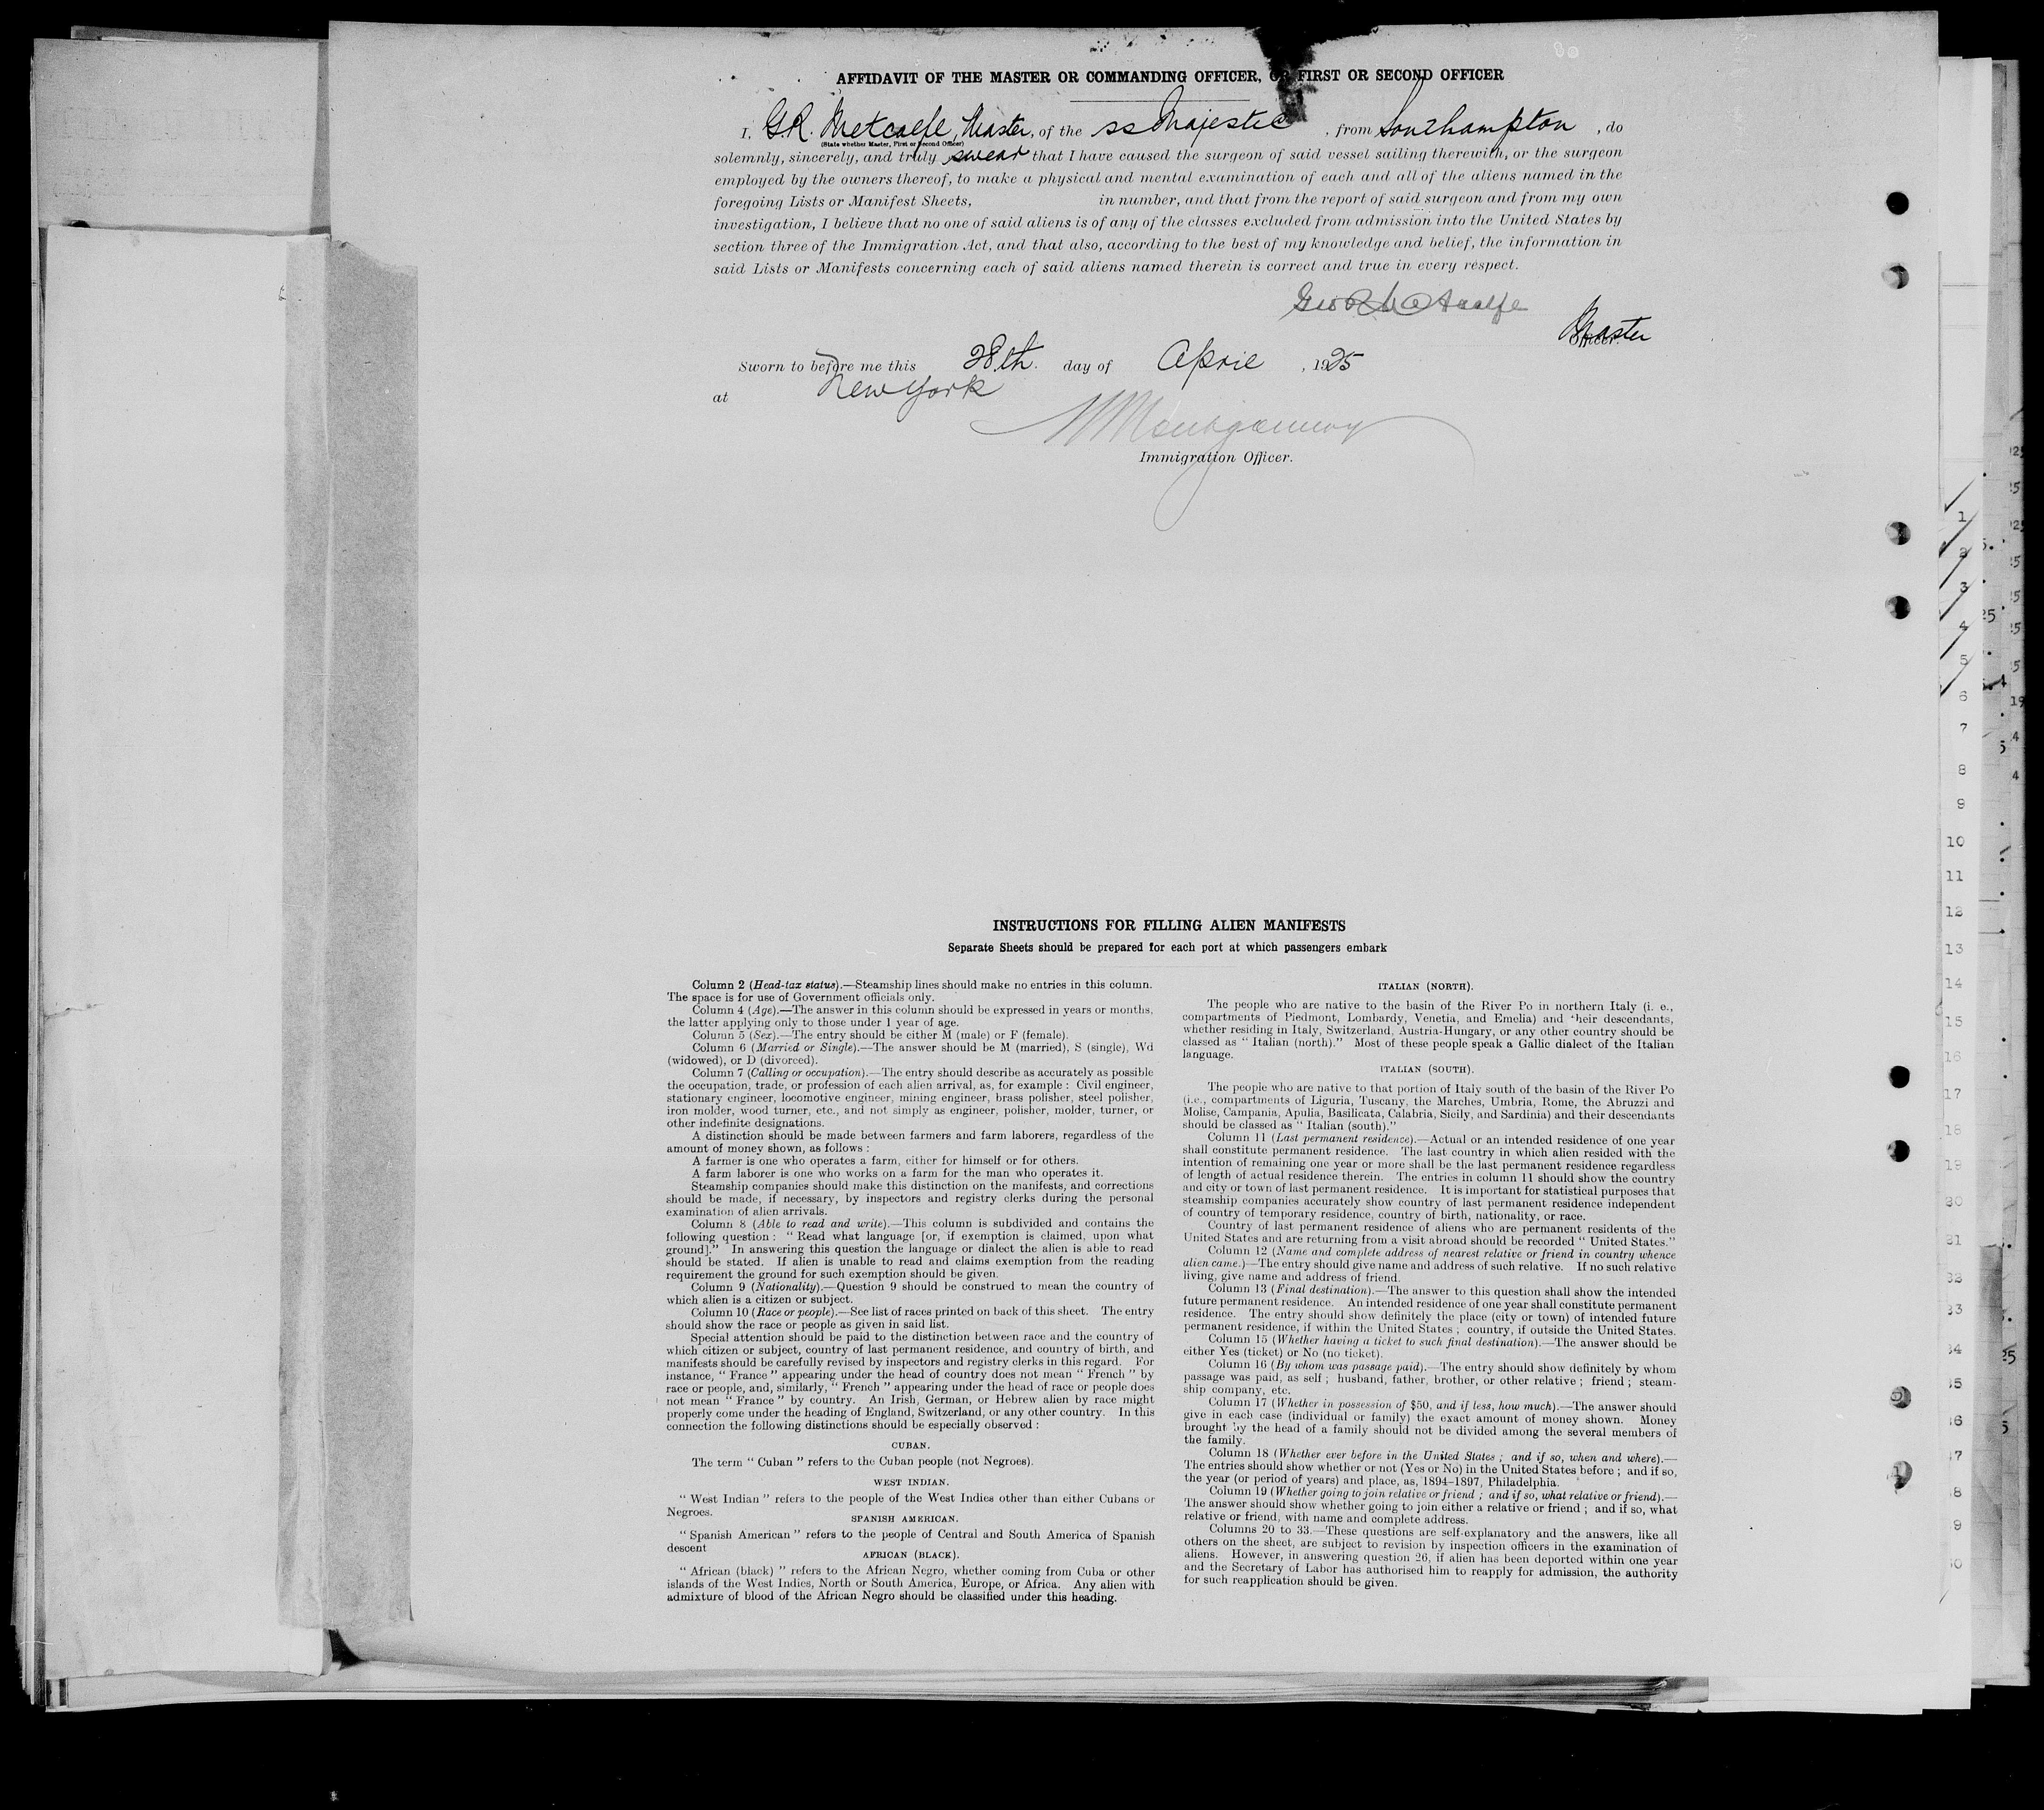 AFFIDAVIT OF THE MASTER OR COMMANDING OFFICER, OR FIRST OR SECOND OFFICER
I, G.R. Metcalfe, Master, of the ss Majestic, from Southampton, do
(State whether Master, First or Second Officer)
solemnly, sincerely, and truly swear that I have caused the surgeon of said vessel sailing therewith, or the surgeon
employed by the owners thereof, to make a physical and mental examination of each and all of the aliens named in the
foregoing Lists or Manifest Sheets, in number, and that from the report of said surgeon and from my own
investigation, I believe that no one of said aliens is of any of the classes excluded from admission into the United States by
section three of the Immigration Act, and that also, according to the best of my knowledge and belief, the information in
said Lists or Manifests concerning each of said aliens named therein is correct and true in every respect.
Geo R Metcalfe
Master
Officer.
Sworn to before me this 28th. day of April, 1925
at New York
Montgomery
Immigration Officer.
INSTRUCTIONS FOR FILLING ALIEN MANIFESTS
Separate Sheets should be prepared for each port at which passengers embark
Column 2 (Head-tax status).—Steamship lines should make no entries in this column.
The space is for use of Government officials only.
Column 4 (Age).—The answer in this column should be expressed in years or months,
the latter applying only to those under 1 year of age.
Column 5 (Sex).—The entry should be either M (male) or F (female).
Column 6 (Married or Single).—The answer should be M (married), S (single), Wd
(widowed), or D (divorced).
Column 7 (Calling or occupation).—The entry should describe as accurately as possible
the occupation, trade, or profession of each alien arrival, as, for example : Civil engineer,
stationary engineer, locomotive engineer, mining engineer, brass polisher, steel polisher,
iron molder, wood turner, etc., and not simply as engineer, polisher, molder, turner, or
other indefinite designations.
A distinction should be made between farmers and farm laborers, regardless of the
amount of money shown, as follows :
A farmer is one who operates a farm, either for himself or for others.
A farm laborer is one who works on a farm for the man who operates it.
Steamship companies should make this distinction on the manifests, and corrections
should be made, if necessary, by inspectors and registry clerks during the personal
examination of alien arrivals.
Column 8 (Able to read and write).—This column is subdivided and contains the
following question : " Read what language [or, if exemption is claimed, upon what
ground]." In answering this question the language or dialect the alien is able to read
should be stated. If alien is unable to read and claims exemption from the reading
requirement the ground for such exemption should be given.
Column 9 (Nationality).—Question 9 should be construed to mean the country of
which alien is a citizen or subject.
Column 10 (Race or people).—See list of races printed on back of this sheet. The entry
should show the race or people as given in said list.
Special attention should be paid to the distinction between race and the country of
which citizen or subject, country of last permanent residence, and country of birth, and
manifests should be carefully revised by inspectors and registry clerks in this regard. For
instance, " France " appearing under the head of country does not mean " French " by
race or people, and, similarly, " French " appearing under the head of race or people does
not mean " France " by country. An Irish, German, or Hebrew alien by race might
properly come under the heading of England, Switzerland, or any other country. In this
connection the following distinctions should be especially observed :
CUBAN.
The term " Cuban " refers to the Cuban people (not Negroes).
WEST INDIAN.
" West Indian " refers to the people of the West Indies other than either Cubans or
Negroes.
SPANISH AMERICAN.
" Spanish American " refers to the people of Central and South America of Spanish
descent
AFRICAN (BLACK).
" African (black) " refers to the African Negro, whether coming from Cuba or other
islands of the West Indies, North or South America, Europe, or Africa. Any alien with
admixture of blood of the African Negro should be classified under this heading.
ITALIAN (NORTH).
The people who are native to the basin of the River Po in northern Italy (i. e.,
compartments of Piedmont, Lombardy, Venetia, and Emelia) and their descendants,
whether residing in Italy, Switzerland, Austria-Hungary, or any other country should be
classed as " Italian (north)." Most of these people speak a Gallic dialect of the Italian
language.
ITALIAN (SOUTH).
The people who are native to that portion of Italy south of the basin of the River Po
(i.e., compartments of Liguria, Tuscany, the Marches, Umbria, Rome, the Abruzzi and
Molise, Campania, Apulia, Basilicata, Calabria, Sicily, and Sardinia) and their descendants
should be classed as " Italian (south)."
Column 11 (Last permanent residence).—Actual or an intended residence of one year
shall constitute permanent residence. The last country in which alien resided with the
intention of remaining one year or more shall be the last permanent residence regardless
of length of actual residence therein. The entries in column 11 should show the country
and city or town of last permanent residence. It is important for statistical purposes that
steamship companies accurately show country of last permanent residence independent
of country of temporary residence, country of birth, nationality, or race.
Country of last permanent residence of aliens who are permanent residents of the
United States and are returning from a visit abroad should be recorded " United States."
Column 12 (Name and complete address of nearest relative or friend in country whence
alien came.)—The entry should give name and address of such relative. If no such relative
living, give name and address of friend.
Column 13 (Final destination).—The answer to this question shall show the intended
future permanent residence. An intended residence of one year shall constitute permanent
residence. The entry should show definitely the place (city or town) of intended future
permanent residence, if within the United States ; country, if outside the United States.
Column 15 (Whether having a ticket to such final destination).—The answer should be
either Yes (ticket) or No (no ticket).
Column 16 (By whom was passage paid).—The entry should show definitely by whom
passage was paid, as self ; husband, father, brother, or other relative ; friend ; steam-
ship company, etc.
Column 17 (Whether in possession of $50, and if less, how much).—The answer should
give in each case (individual or family) the exact amount of money shown. Money
brought by the head of a family should not be divided among the several members of
the family.
Column 18 (Whether ever before in the United States ; and if so, when and where).—
The entries should show whether or not (Yes or No) in the United States before ; and if so,
the year (or period of years) and place, as, 1894-1897, Philadelphia.
Column 19 (Whether going to join relative or friend ; and if so, what relative or friend).—
The answer should show whether going to join either a relative or friend ; and if so, what
relative or friend, with name and complete address.
Columns 20 to 33.—These questions are self-explanatory and the answers, like all
others on the sheet, are subject to revision by inspection officers in the examination of
aliens. However, in answering question 26, if alien has been deported within one year
and the Secretary of Labor has authorised him to reapply for admission, the authority
for such reapplication should be given.
1
2
3
4
5
6
7
8
9
10
11
12
13
14
15
16
17
18
19